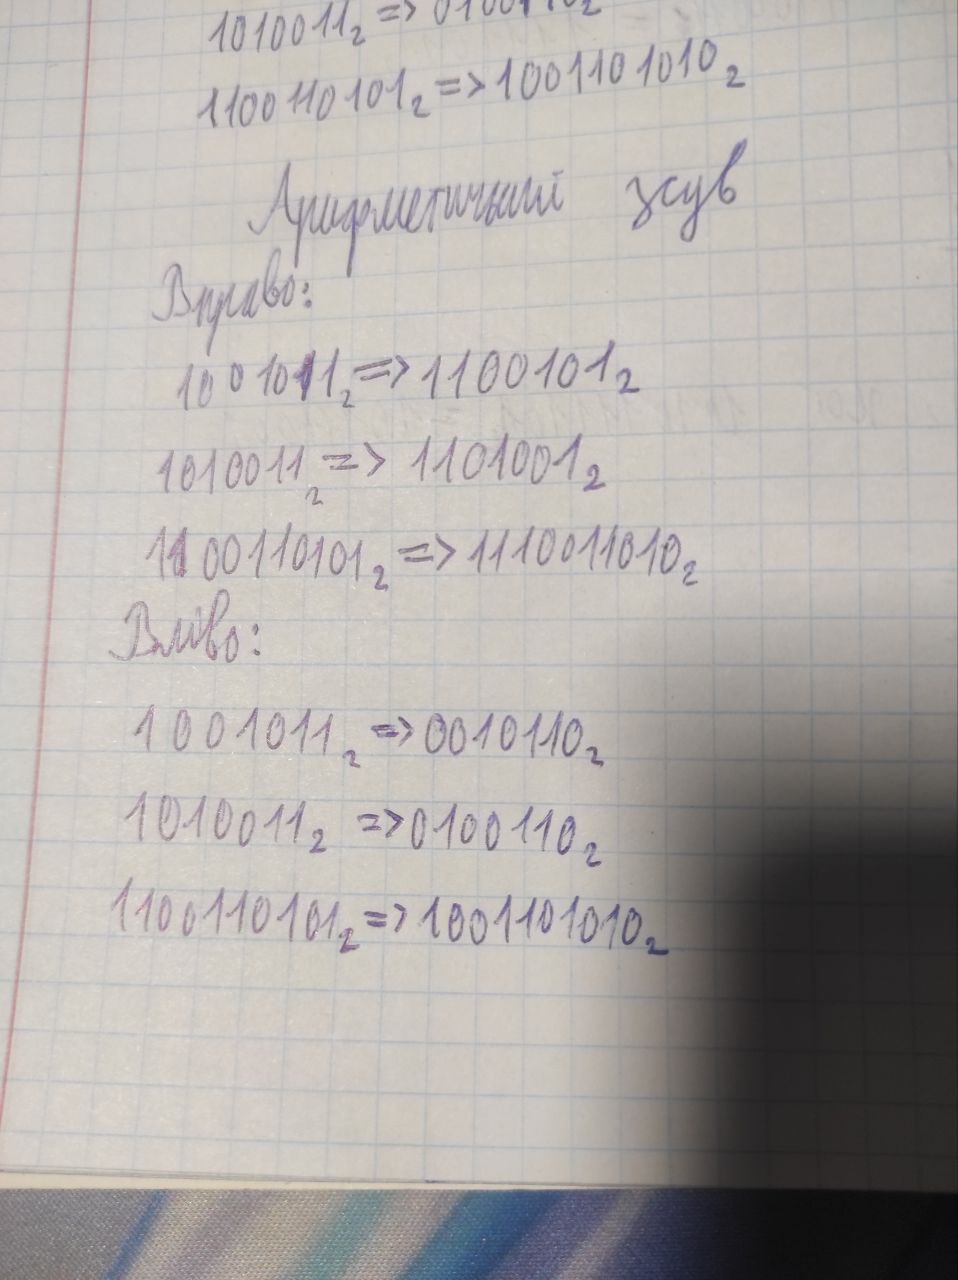 1010011₂ =>
1100110101₂ => 1001101010₂
Арифметичний зсув
Вправо:
1001011₂ => 1100101₂
1010011₂ => 1101001₂
1100110101₂ => 1110011010₂
Вліво:
1001011₂ => 0010110₂
1010011₂ => 0100110₂
1100110101₂ => 1001101010₂